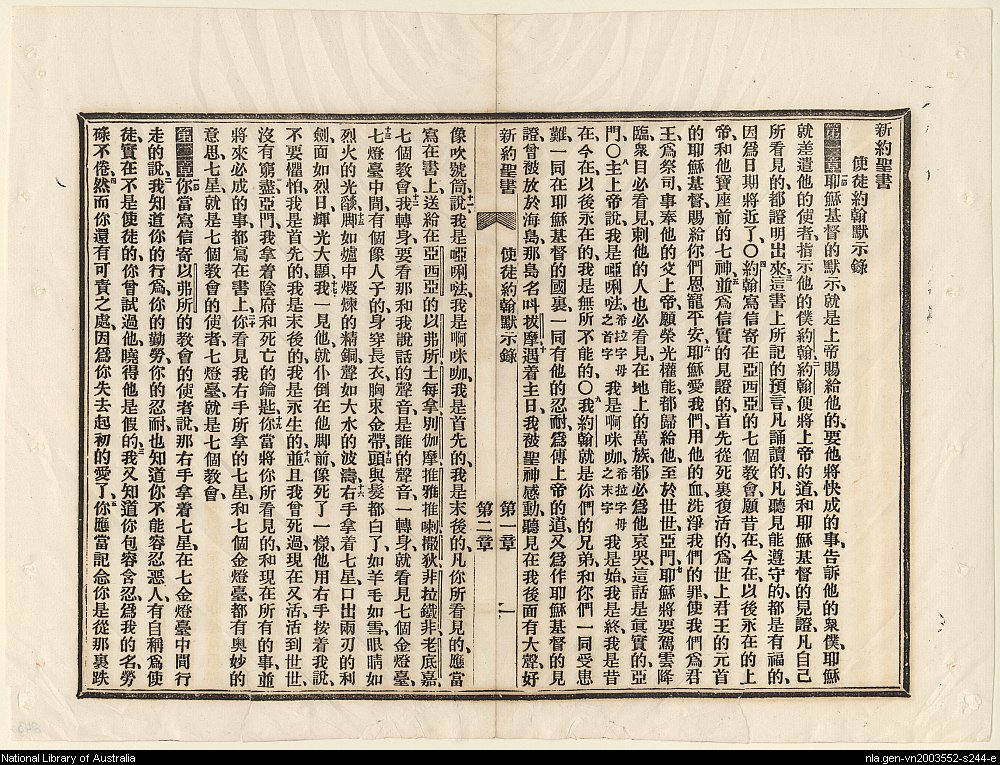 新約聖書
使徒約翰默示錄
第一章一耶穌基督的默示就是上帝賜給他的、要他將快成的事、告訴他的衆僕、耶穌
就差遣他的使者、指示他的僕約翰、二約翰便將上帝的道、和耶穌基督的見證、凡自己
所看見的、都證明出來、三這書上所記的預言、凡誦讀的、凡聽見能遵守的、都是有福的、
因爲日期將近了、〇四約翰寫信寄在亞西亞的七個教會、願昔在今在以後永在的上
帝、和他寶座前的七神、五並爲信實的見證的、首先從死裏復活的、爲世上君王的元首
的耶穌基督、賜給你們恩寵平安、耶穌愛我們、用他的血洗淨我們的罪、六使我們爲君
王、爲祭司、事奉他的父上帝、願榮光權能、都歸給他、至於世世、亞門、七耶穌將要駕雲降
臨、衆目必看見、刺他的人也必看見、在地上的萬族、都必爲他哀哭、這話是眞實的、亞
門、〇八主上帝說、我是啞唎啡希拉字母之首字我是啊咪咖希拉字母之末字我是始、我是終、我是昔
在、今在、以後永在的、我是無所不能的、〇九我約翰就是你們的兄弟、和你們一同受患
難、一同在耶穌基督的國裏、一同有他的忍耐、爲傳上帝的道、又爲作耶穌基督的見
證、曾被放於海島、那島名叫拔摩、十遇着主日、我被聖神感動、聽見在我後面有大聲好
新約聖書 使徒約翰默示錄 第一章 第二章 一
像吹號筒、說、十一我是啞唎啡、我是啊咪咖、我是首先的、我是末後的、凡你所看見的、應當
寫在書上、送給在亞西亞的以弗所、士每拿、別伽摩、推雅推喇、撒狄、非拉鐵非、老底嘉、
七個教會、十二我轉身要看那和我說話的聲音是誰的聲音、一轉身就看見七個金燈臺、
十三七燈臺中間、有個像人子的、身穿長衣、胸束金帶、十四頭與髮都白了、如羊毛如雪、眼睛如
烈火的光燄、十五脚如爐中煅煉的精銅、聲如大水的波濤、十六右手拿着七星、口出兩刃的利
劍、面如烈日輝光大顯、十七我一見他、就仆倒在他脚前、像死了一樣、他用右手按着我說、
不要懼怕、我是首先的、我是末後的、十八我是永生的、並且我曾死過、現在又活、活到世世、
沒有窮盡、亞門、我拿着陰府和死亡的鑰匙、十九你當將你所看見的、和現在所有的事、並
將來必成的事、都寫在書上、二十你看見我右手所拿的七星、和七個金燈臺、都有奧妙的
意思、七星就是七個教會的使者、七燈臺就是七個教會、
第二章一你當寫信寄以弗所的教會的使者說、那右手拿着七星、在七金燈臺中間行
走的說、二我知道你的行爲、你的勤勞、你的忍耐、也知道你不能容忍惡人、有自稱爲使
徒、實在不是使徒的、你曾試過他、曉得他是假的、三我又知道你包容含忍、爲我的名勞
碌不倦、四然而你還有可責之處、因爲你失去起初的愛了、五你應當記念你是從那裏跌
National Library of Australia
nla.gen-vn2003552-s244-e